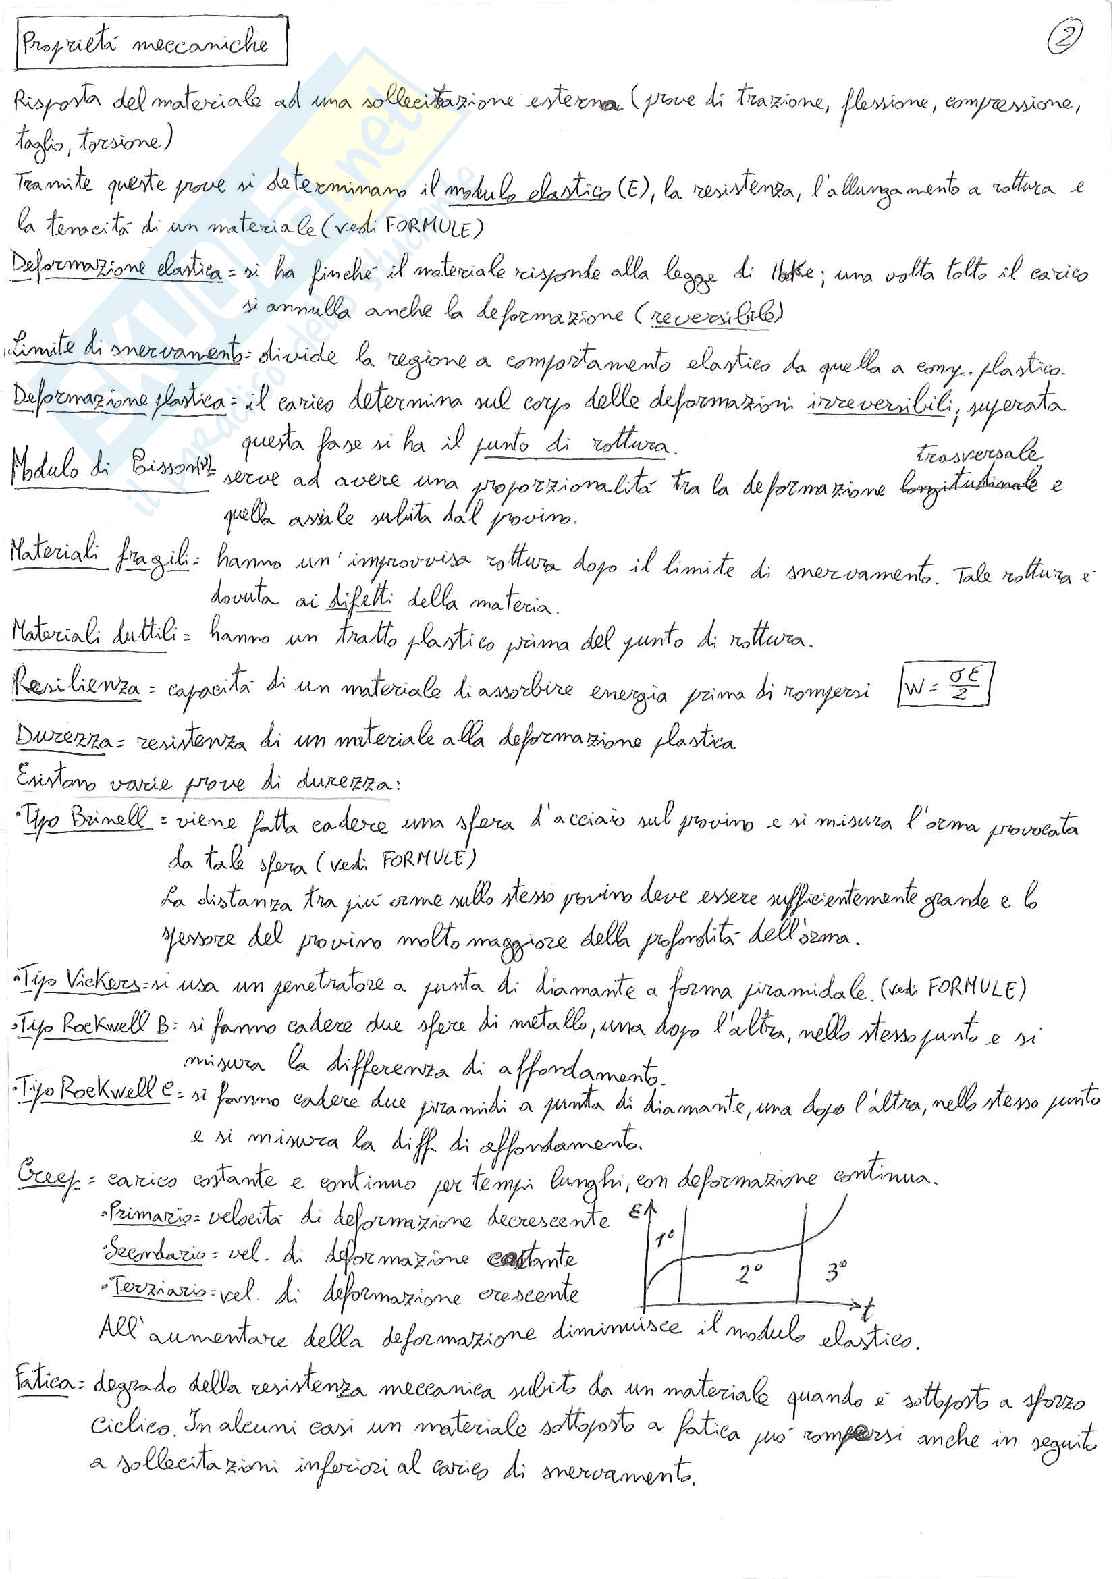 Proprietà meccaniche
2
Risposta del materiale ad una sollecitazione esterna (prove di trazione, flessione, compressione,
taglio, torsione)
Tramite queste prove si determinano il modulo elastico (E), la resistenza, l'allungamento a rottura e
la tenacità di un materiale (vedi FORMULE)
Deformazione elastica = si ha finché il materiale risponde alla legge di Hooke; una volta tolto il carico
si annulla anche la deformazione (reversibile)
Limite di snervamento = divide la regione a comportamento elastico da quella a comp. plastico.
Deformazione plastica = il carico determina sul corpo delle deformazioni irreversibili; superata
questa fase si ha il punto di rottura.
trasversale
Modulo di Poisson = serve ad avere una proporzionalità tra la deformazione longitudinale e
quella assiale subita dal provino.
Materiali fragili = hanno un'improvvisa rottura dopo il limite di snervamento. Tale rottura è
dovuta ai difetti della materia.
Materiali duttili = hanno un tratto plastico prima del punto di rottura.
Resilienza = capacità di un materiale di assorbire energia prima di rompersi W = σε/2
Durezza = resistenza di un materiale alla deformazione plastica
Esistono varie prove di durezza:
• Tipo Brinell = viene fatta cadere una sfera d'acciaio sul provino e si misura l'orma provocata
da tale sfera (vedi FORMULE)
La distanza tra più orme sullo stesso provino deve essere sufficientemente grande e lo
spessore del provino molto maggiore della profondità dell'orma.
• Tipo Vickers = si usa un penetratore a punta di diamante a forma piramidale. (vedi FORMULE)
• Tipo Rockwell B = si fanno cadere due sfere di metallo, una dopo l'altra, nello stesso punto e si
misura la differenza di affondamento.
• Tipo Rockwell C = si fanno cadere due piramidi a punta di diamante, una dopo l'altra, nello stesso punto
e si misura la diff. di affondamento.
Creep = carico costante e continuo per tempi lunghi, con deformazione continua.
• Primario = velocità di deformazione decrescente
• Secondario = vel. di deformazione costante
• Terziario = vel. di deformazione crescente
ε
1°
2°
3°
t
All'aumentare della deformazione diminuisce il modulo elastico.
Fatica = degrado della resistenza meccanica subito da un materiale quando è sottoposto a sforzo
ciclico. In alcuni casi un materiale sottoposto a fatica può rompersi anche in seguito
a sollecitazioni inferiori al carico di snervamento.